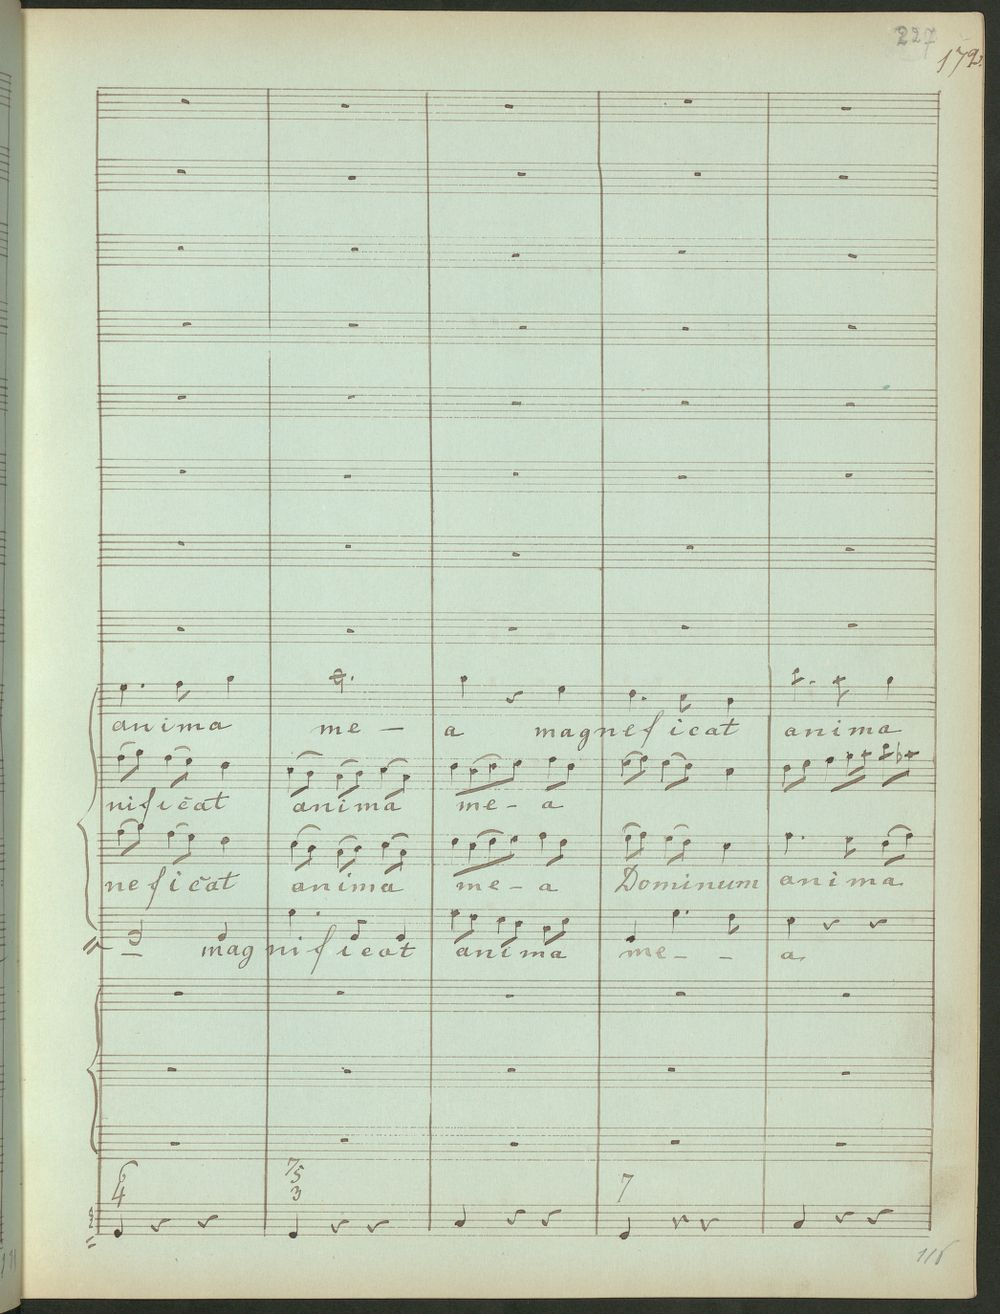 227
179.
anima me — a magneficat anima
nificat anima me - a
neficat anima me - a Dominum anima
— magnificat anima me - - a
6 7 5
4 3 7
116